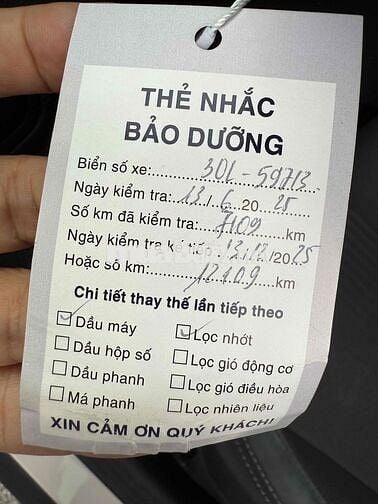 THẺ NHẮC
BẢO DƯỠNG
Biển số xe:........30L-59713
Ngày kiểm tra:..13../..6..20..25
Số km đã kiểm tra:....7109....km
Ngày kiểm tra kế tiếp..13.12../20.25
Hoặc số km:........12109......km
Chi tiết thay thế lần tiếp theo
☑ Dầu máy ☑ Lọc nhớt
☐ Dầu hộp số ☐ Lọc gió động cơ
☐ Dầu phanh ☐ Lọc gió điều hòa
☐ Má phanh ☐ Lọc nhiên liệu
XIN CẢM ƠN QUÝ KHÁCH!